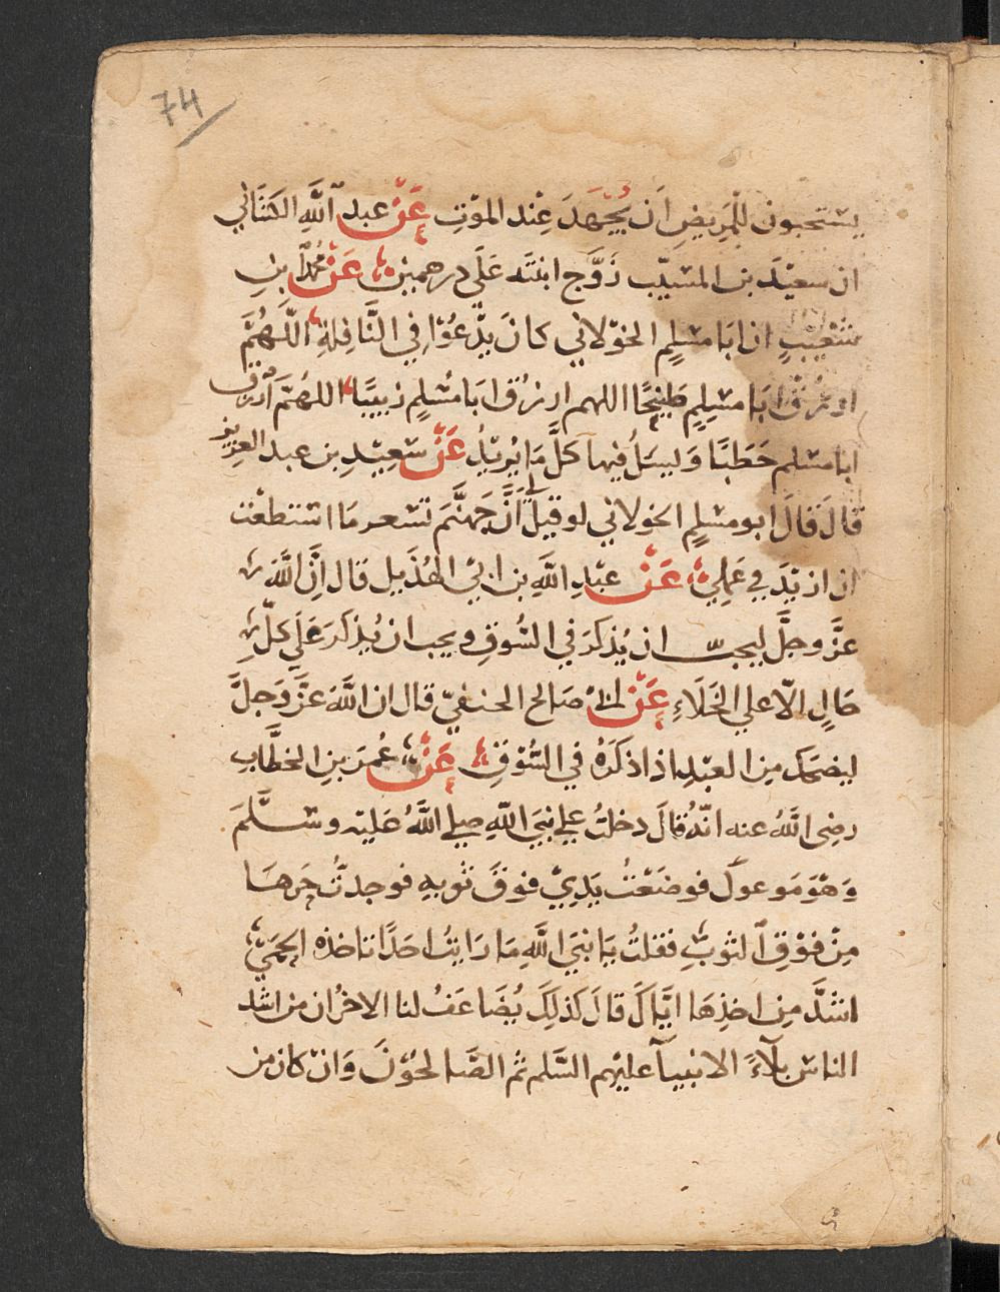 74
يستحبون للمريض ان يجهد عند الموت عن عبد الله الكتاني
ان سعيد بن المسيب زوج ابنته على درهمين عن محمد بن
شعيب ان ابا مسلم الخولاني كان يدعوا في النافلة اللهم
ارزق ابا مسلم طبيخا اللهم ارزق ابا مسلم زبيبا اللهم ارزق
ابا مسلم حطبا وليسل فيها كل ما يريد عن سعيد بن عبد العزيز
قال قال ابو مسلم الخولاني لو قيل ان جهنم تسعر ما استطعت
ان ازيد في عملي عن عبد الله بن ابي الهذيل قال ان الله
عز وجل ليحب ان يذكر في السوق ويحب ان يذكر على كل
حال الا على الخلاء عن ابي صالح الحنفي قال ان الله عز وجل
ليضحك من العبد اذا ذكره في السوق عن عمر بن الخطاب
رضى الله عنه انه قال دخلت على نبي الله صلى الله عليه وسلم
وهو موعوك فوضعت يدي فوق ثوبه فوجدت حرها
من فوق الثوب فقلت يا نبي الله ما رايت احدا تاخذه الحمى
اشد من اخذها اياك قال كذلك يضاعف لنا الاجر ان من اشد
الناس بلاء الانبيا عليهم السلم ثم الصالحون وان كان من